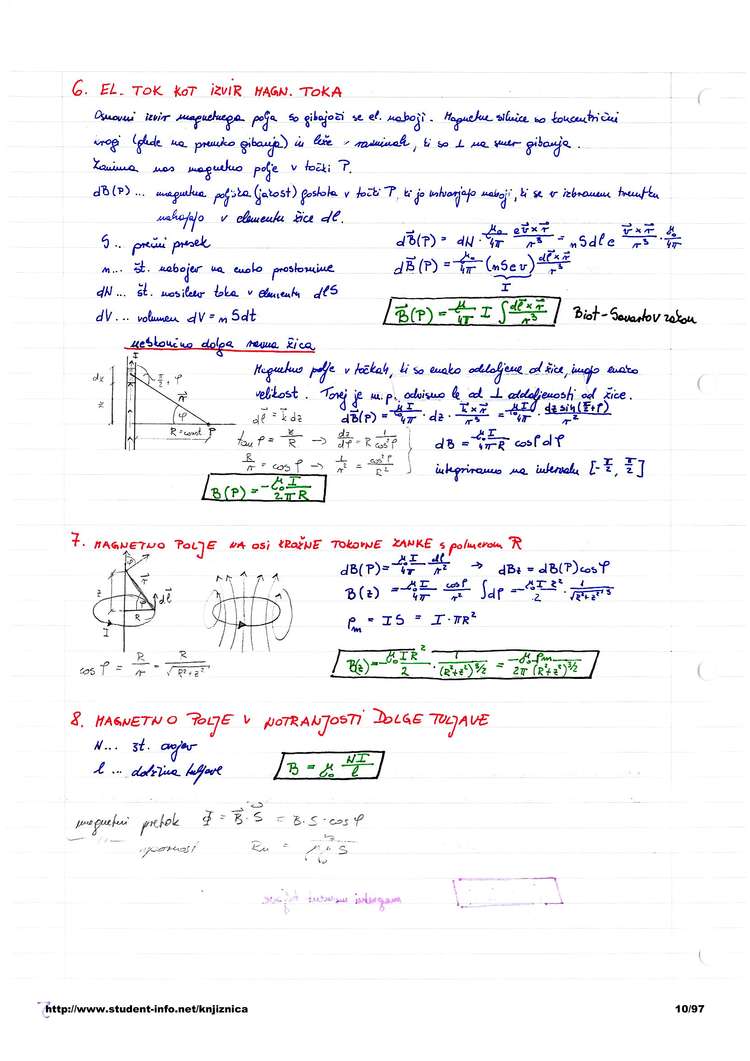 6. EL. TOK KOT IZVIR MAGN. TOKA
Osnovni izvir magnetnega polja so gibajoči se el. naboji. Magnetne silnice so koncentrični
krogi (glede na premico gibanja) in leže v ravninah, ki so ⊥ na smer gibanja.
Zanima nas magnetno polje v točki P.
dB(P)... magnetna poljska (jakost) gostota v točki P, ki jo ustvarjajo naboji, ki se v izbranem trenutku
nahajajo v elementu žice dl.
S .. prečni presek
dB⃗(P) = dN · μ₀/4π · e v⃗×r⃗/r³ = nSdl e v⃗×r⃗/r³ · μ₀/4π
n... št. nabojev na enoto prostornine
dB⃗(P) = μ₀/4π (nSev) dl⃗×r⃗/r³
I
dN... št. nosilcev toka v elementu dlS
dV... volumen dV = nSdt
B⃗(P) = μ₀/4π I ∫ dl⃗×r⃗/r³
Biot-Savartov zakon
neskončno dolga ravna žica
I
dz
π/2 + φ
r⃗
z
φ
R=const
P
Magnetno polje v točkah, ki so enako oddaljene od žice, imajo enako
velikost. Torej je m.p. odvisno le od ⊥ oddaljenosti od žice.
dl⃗ = k⃗ dz
dB⃗(P) = μ₀I/4π · dz · k⃗×r⃗/r³ = μ₀I/4π · dz sin(π/2+φ)/r²
tan φ = z/R → dz/dφ = R 1/cos²φ
dB = μ₀I/4πR cosφ dφ
R/r = cos φ → 1/r² = cos²φ/R²
integriramo na intervalu [-π/2, π/2]
B(P) = μ₀I/2πR
7. MAGNETNO POLJE NA OSI KROŽNE TOKOVNE ZANKE s polmerom R
φ
r⃗
z
φ
dl⃗
R
I
dB(P) = μ₀I/4π dl/r² → dBz = dB(P)cosφ
B(z) = μ₀I/4π cosφ/r² ∫dl = μ₀I R²/2 · 1/√R²+z²³
Pm = IS = I·πR²
cos φ = R/r = R/√R²+z²
B(z) = μ₀IR²/2 · 1/(R²+z²)^3/2 = μ₀Pm/2π(R²+z²)^3/2
8. MAGNETNO POLJE V NOTRANJOSTI DOLGE TULJAVE
N... št. ovojev
l ... dolžina tuljave
B = μ₀ NI/l
magnetni pretok Φ = B⃗·S⃗ = B·S·cosφ
upornosti Rm =
magnetni moment tuljave
http://www.student-info.net/knjiznica
10/97